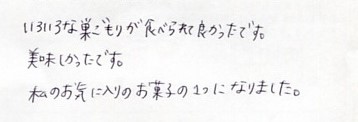 いろいろな巣ごもりが食べられて良かったです。
美味しかったです。
私のお気に入りのお菓子の1つになりました。